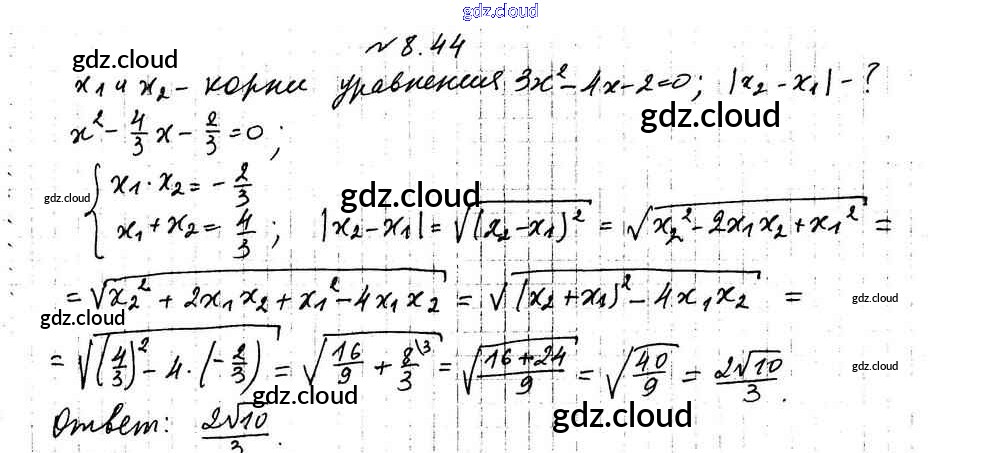 gdz.cloud
№ 8.44
gdz.cloud
x₁ и x₂ - корни уравнения 3x² - 4x - 2 = 0; |x₂ - x₁| - ?
gdz.cloud
x² - 4/3 x - 2/3 = 0;
gdz.cloud
gdz.cloud
{ x₁ · x₂ = - 2/3
x₁ + x₂ = 4/3; |x₂ - x₁| = √(x₂ - x₁)² = √x₂² - 2x₁x₂ + x₁² =
= √x₂² + 2x₁x₂ + x₁² - 4x₁x₂ = √(x₂ + x₁)² - 4x₁x₂ =
gdz.cloud
gdz.cloud
= √(4/3)² - 4 · (- 2/3) = √16/9 + 8/3 \3 = √16 + 24/9 = √40/9 = 2√10/3.
gdz.cloud
gdz.cloud
gdz.cloud
Ответ: 2√10/3.